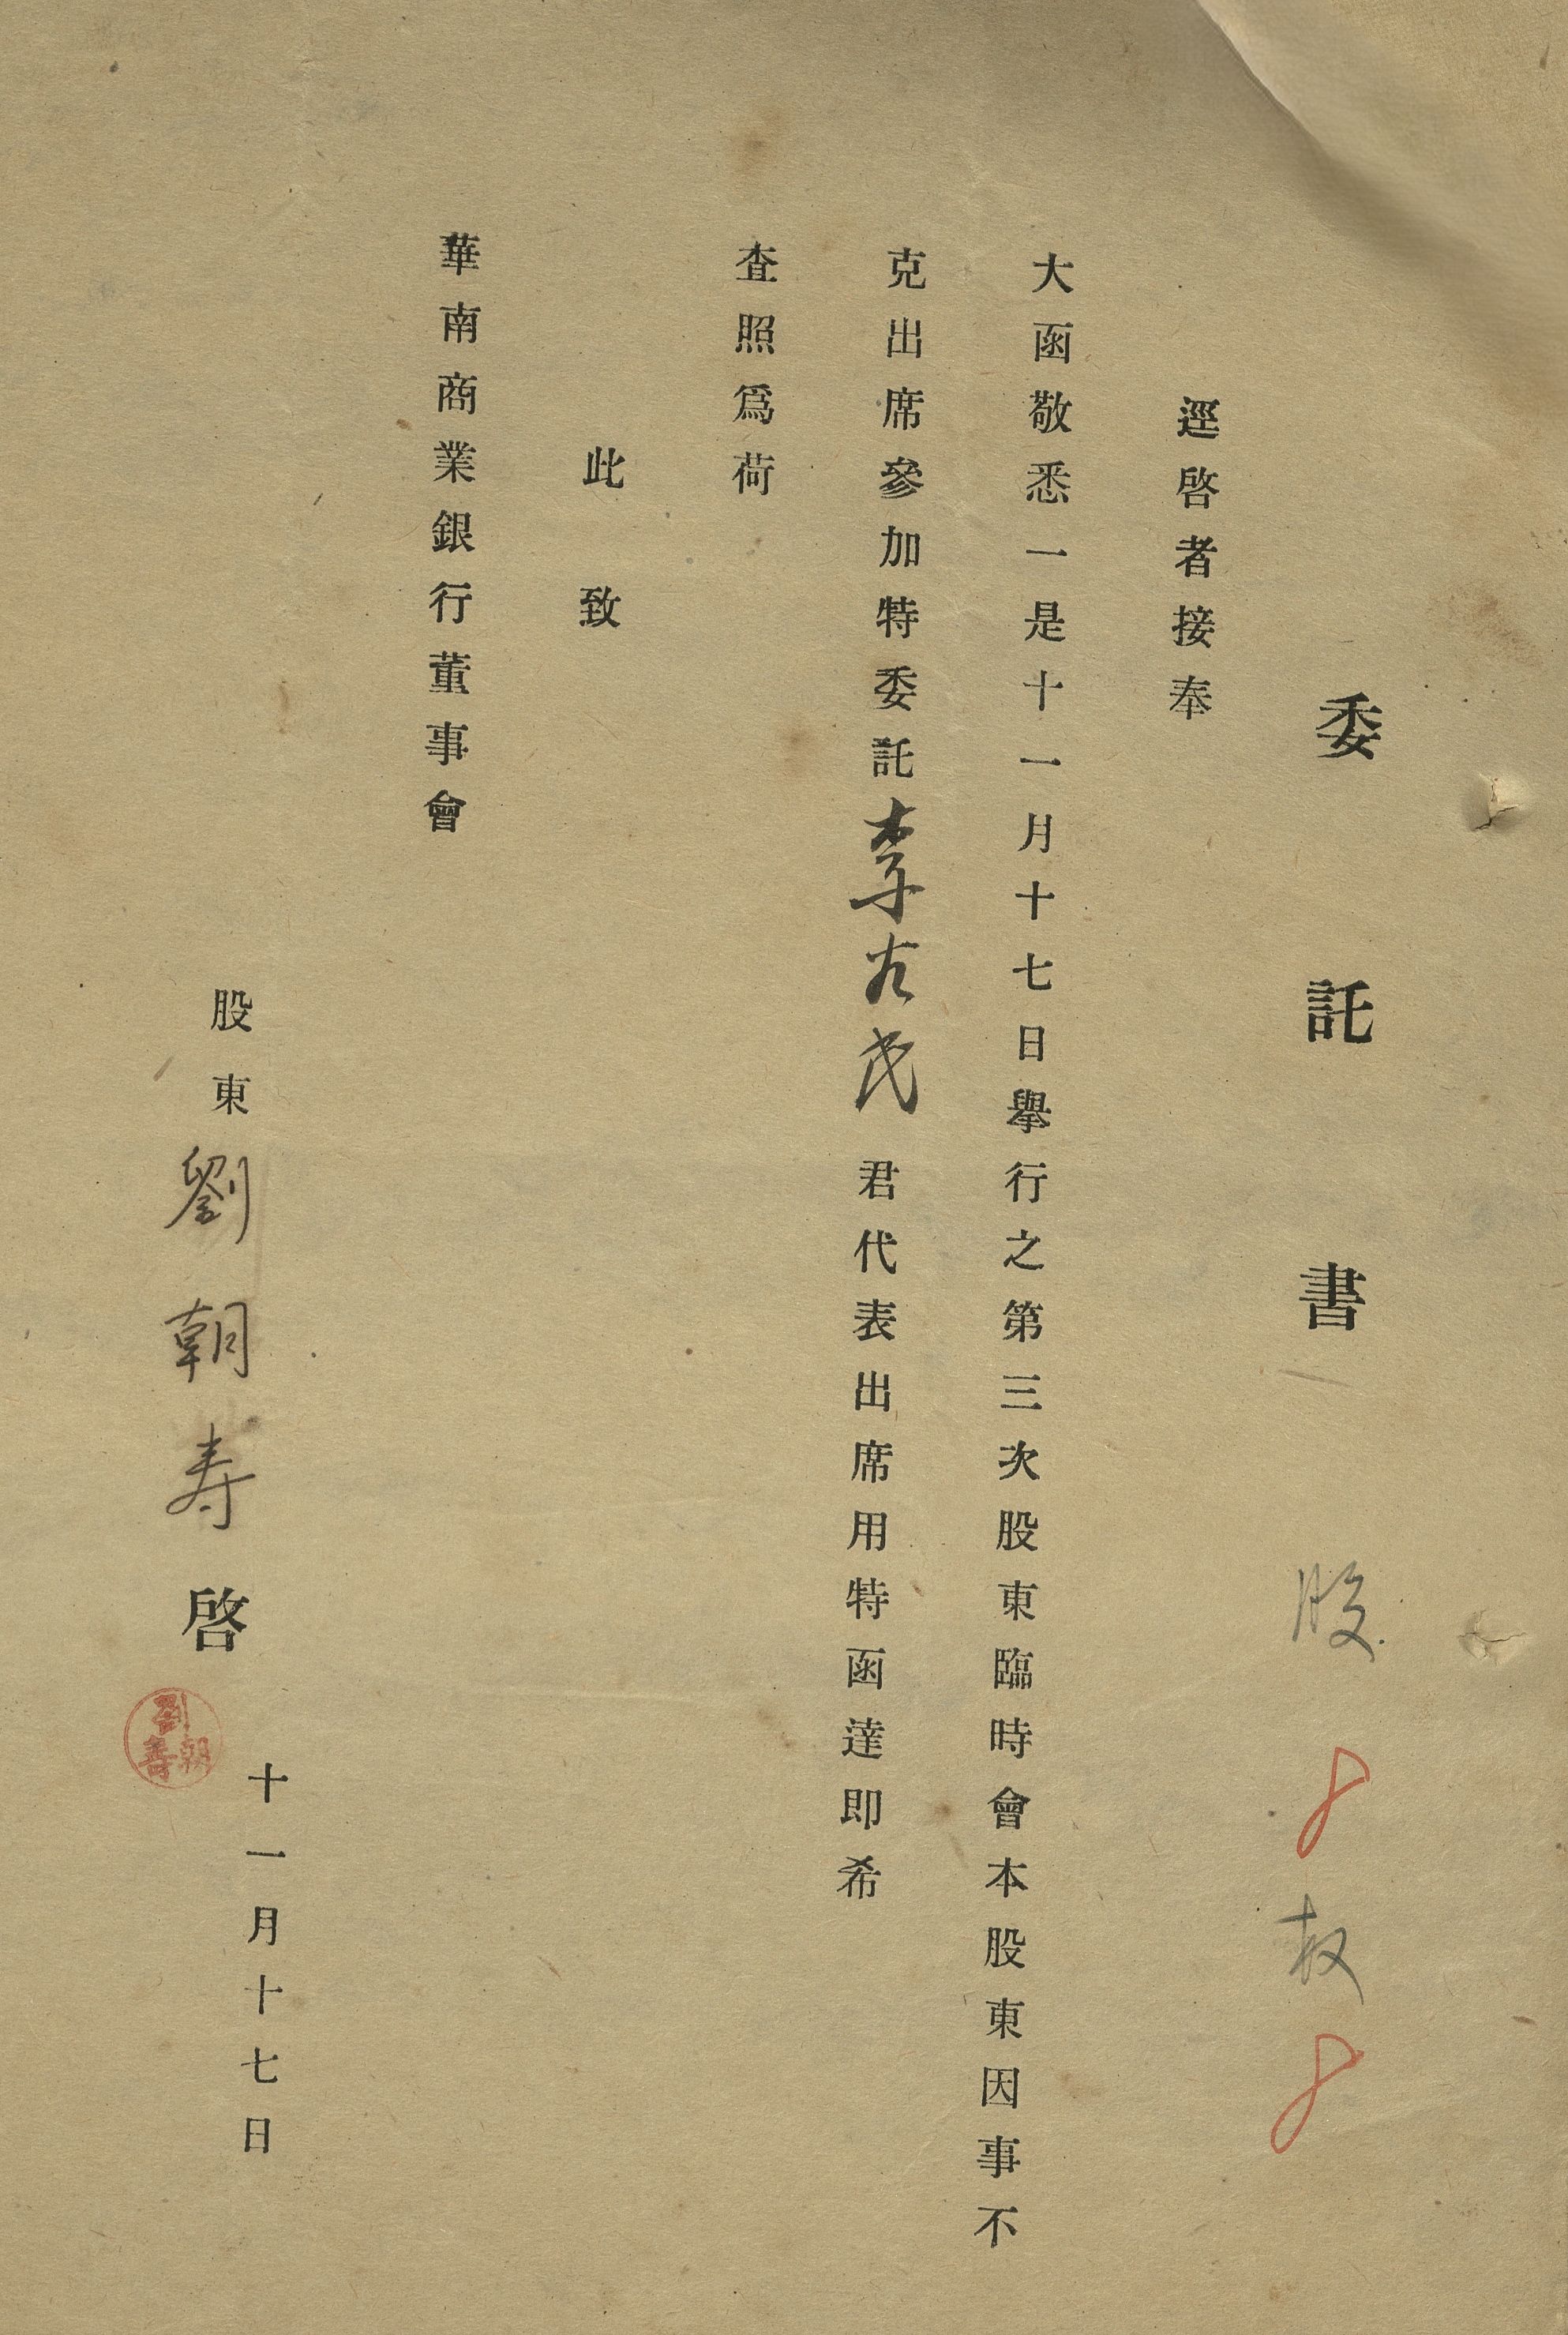 委託書 股 8 权 8
逕啓者接奉
大函敬悉一是十一月十七日舉行之第三次股東臨時會本股東因事不
克出席參加特委託李右民君代表出席用特函達即希
查照爲荷
此致
華南商業銀行董事會
股東劉朝寿啓
劉朝壽
十一月十七日